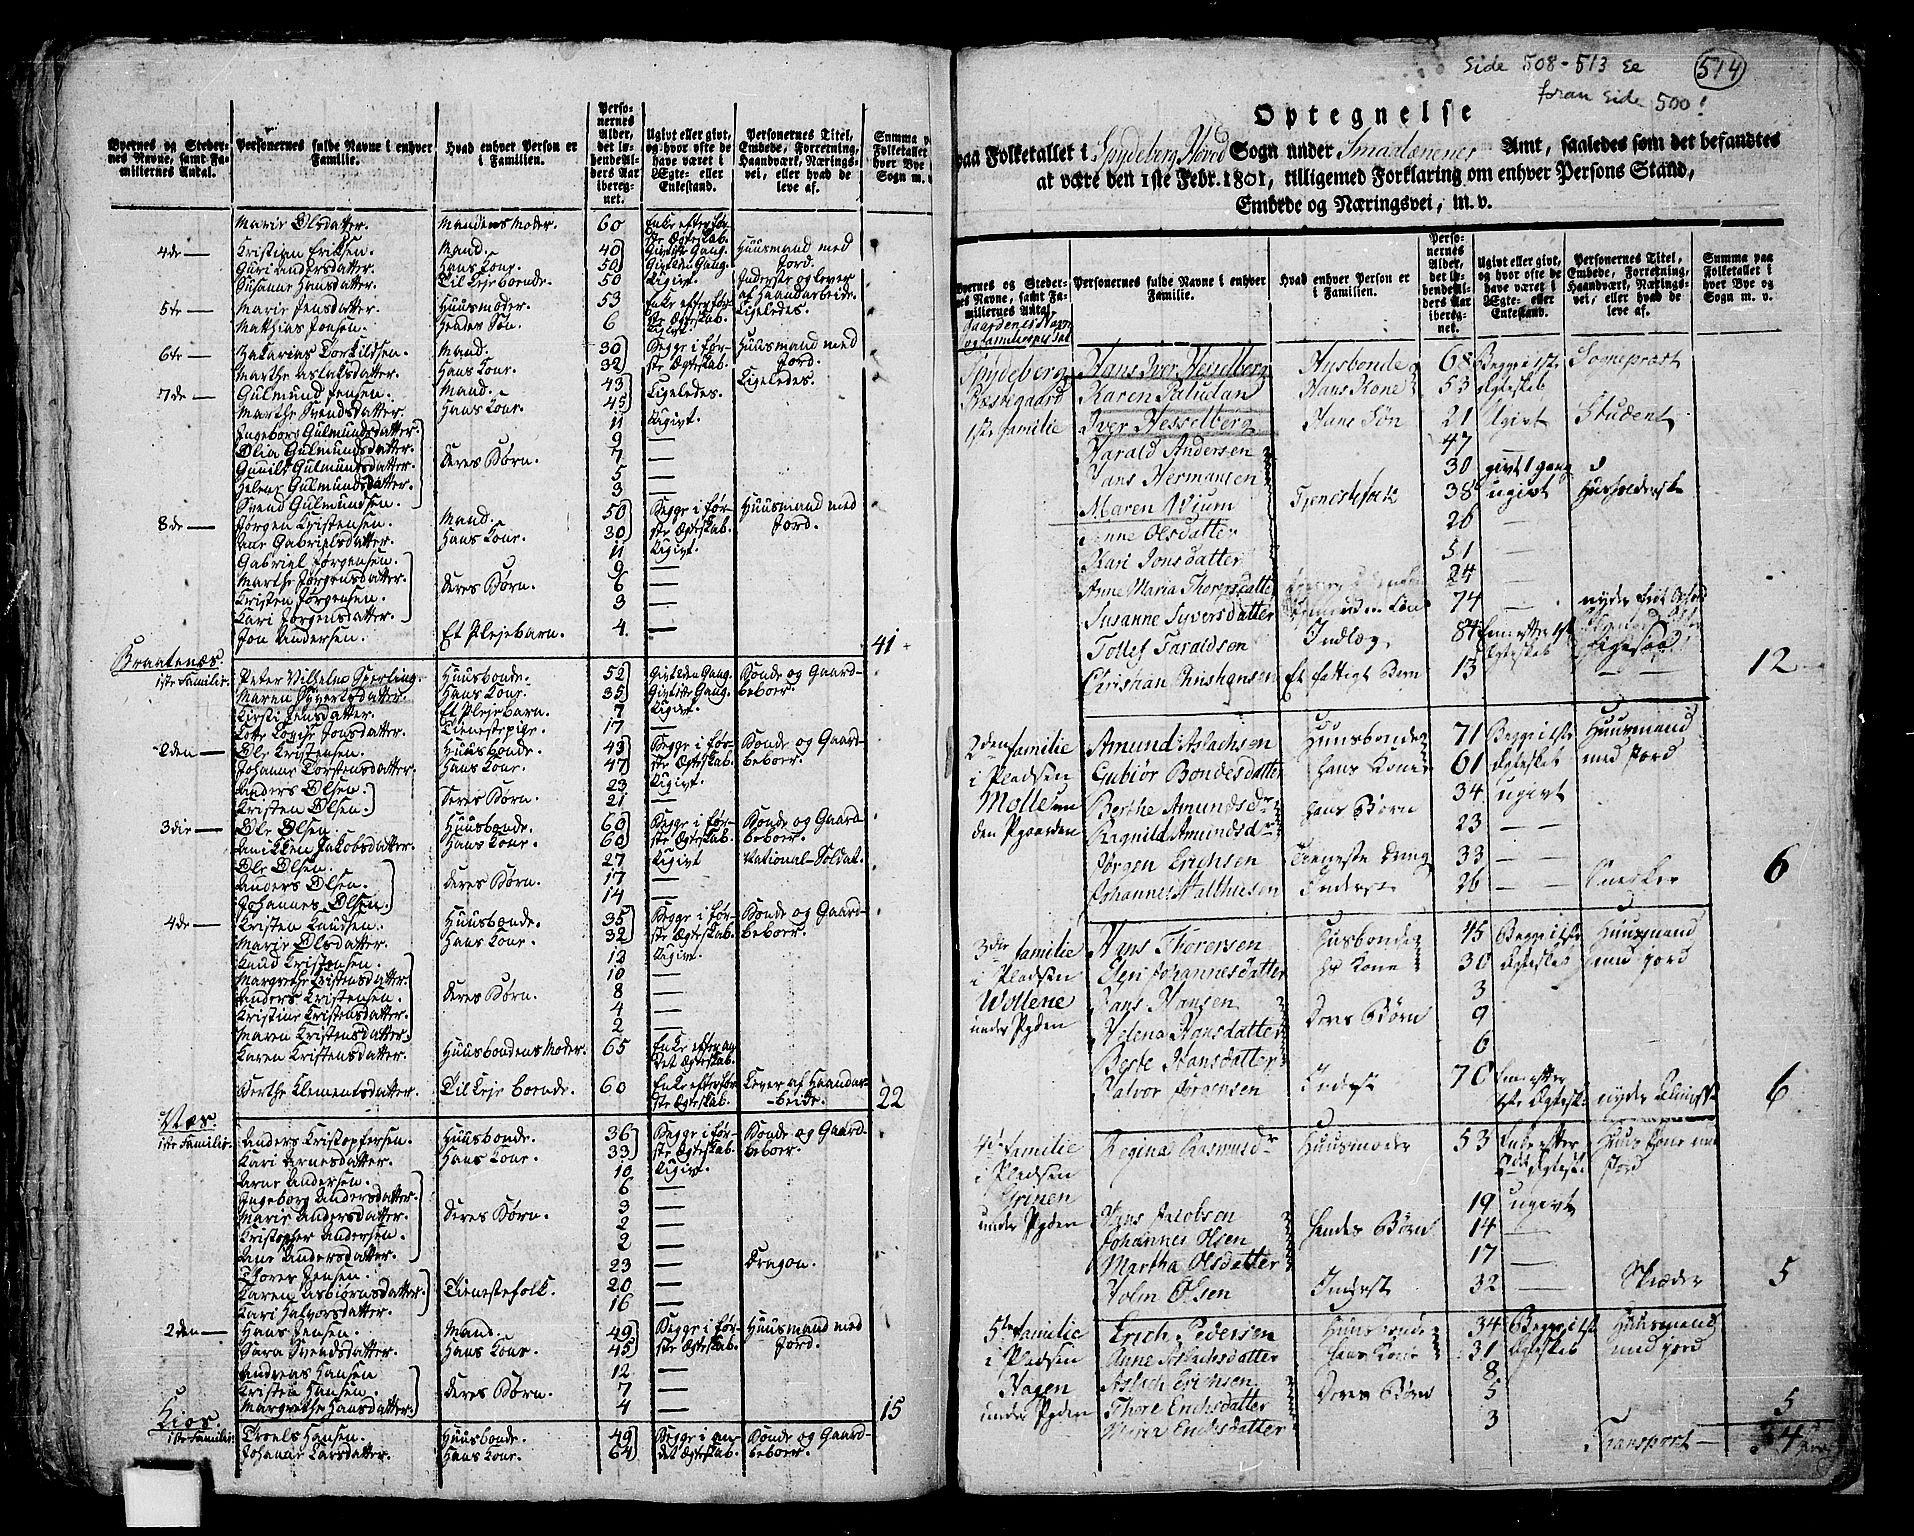 Side 508-513 se
foran side 500!
514
Byernes og Stedernes Navne, samt Familiernes Antal.
Personernes fulde Navne i enhver Familie.
Hvad enhver Person er i Familien.
Personernes Alder, det løbendeAlders Aar iberegnet.
Ugivt eller givt, og hvor ofte de have været i Ægte- eller Enkestand.
Personernes Titel, Embede, Forretning, Haandværk, Næringsvei, eller hvad de leve af.
Summa paa Folketallet hver Bye Sogn m. v.
Marie Olsdatter. Mandens Moder. 60 Enke efter første Ægteskab.
4de — Kristian Eriksen. Mand. 40 Givt 1ste Gang. Huusmand med Jord.
Guri Andersdatter. Hans Kone. 50 Givt 2den Gang.
Susanne Hansdatter. Til Leje boende. 50 Ugivt. Inderste og lever af Haandarbeide.
5te — Marie Jensdatter. Huusmoder. 53 Enke efter første Ægteskab. Ligeledes.
Matthias Jonsen. Hendes Søn. 6 Ugivt.
6te — Zakarias Torkildsen. Mand. 30 Begge i første Ægteskab. Huusmand med Jord.
Marthe Aslaksdatter. Hans Kone. 32
7de — Gulmund Jensen. Mand. 43 Ligeledes. Ligeledes.
Marthe Svendsdatter. Hans Kone. 45
Ingeborg Gulmundsdatter. 11 Ugivt.
Olia Gulmundsdatter. 9 —
Gunild Gulmundsdatter. Deres Børn. 7 —
Helene Gulmundsdatter. 5 —
Svend Gulmundsen. 3 —
8de — Jørgen Kristensen. Mand. 50 Begge i første Ægteskab. Huusmand med Jord.
Ane Gabrielsdatter. Hans Kone. 30
Gabriel Jørgensen. 11 Ugivt.
Marthe Jørgensdatter. 9 —
Kristen Jørgensen. Deres Børn. 6 —
Kari Jørgensdatter. 3 —
Jon Andersen. Et Plejebarn. 4 — 41
Braatenæs.
1ste Familie. Peter Vilhelm Sperling. Huusbonde. 52 Givt 2den Gang. Bonde og Gaardbeboer.
Maren Syvertsdatter. Hans Kone. 35 Givt 1ste Gang.
Kirsti Jensdatter. Et Plejebarn. 7 Ugivt.
Lotte Lovise Jonsdatter. Tienestepige. 17 —
2den — Ole Kristensen. Huusbonde. 43 Begge i første Ægteskab. Bonde og Gaardbeboer.
Johanne Torstensdatter. Hans Kone. 47
Anders Olsen. 23 Ugivt.
Kristen Olsen. Deres Børn. 21 —
3die — Ole Olsen. Huusbonde. 60 Begge i første Ægteskab. Bonde og Gaardbeboer.
Anikken Jakobsdatter. Hans Kone. 60
Ole Olsen. 27 Ugivt National-Soldat.
Anders Olsen. Deres Børn. 17 —
Johannes Olsen. 14 —
4de — Kristen Knudsen. Huusbonde. 35 Begge i første Ægteskab. Bonde og Gaardbeboer.
Marie Olsdatter. Hans Kone. 32
Knud Kristensen. 12 Ugivt.
Margrethe Kristensdatter. 10 —
Anders Kristensen. Deres Børn. 8 —
Kristine Kristensdatter. 4 —
Maren Kristensdatter. 2 —
Karen Kristensdatter. Huusbondens Moder. 65 Enke efter andet Ægteskab.
Berthe Klementsdatter. Til Leje boende. 60 Enke efter første Ægteskab. Lever af Haandarbeide. 22
Næs.
1ste Familie. Anders Kristophersen. Huusbonde. 36 Begge i første Ægteskab. Bonde og Gaardbeboer.
Kari Arnesdatter. Hans Kone. 33
Arne Andersen. 10 Ugivt.
Ingeborg Andersdatter. 6 —
Marie Andersdatter. Deres Børn. 3 —
Kristopher Andersen. 2 —
Ane Andersdatter. 2 —
Thores Jensen. 23 — Dragon.
Karen Asbiørnsdatter. Tienestefolk. 20 —
Kari Halvorsdatter. 16 —
2den — Hans Jensen. Mand. 49 Begge i første Ægteskab. Huusmand med Jord.
Sara Svendsdatter. Hans Kone. 45
Andreas Hansen 12 —
Kristen Hansen. Deres Børn. 7 —
Margrethe Hansdatter. 4 — 15
Kios.
1ste Familie. Troels Hansen. Huusbonde. 49 Begge i andet Ægteskab. Bonde og Gaardbeboer.
Johanne Larsdatter. Hans Kone. 64
Optegnelse
paa Folketallet i Spydeberg Hoved Sogn under Smaalænenes Amt, saaledes som det befandtes
at være den 1ste Febr. 1801, tilligemed Forklaring om enhver Persons Stand,
Embede og Næringsvei, m. v.
Byernes og Stedernes Navne, samt Familiernes Antal.
Personernes fulde Navne i enhver Familie.
Hvad enhver Person er i Familien.
Personernes Alder, det løbendeAlders Aar iberegnet.
Ugivt eller givt, og hvor ofte de have været i Ægte- eller Enkestand.
Personernes Titel, Embede, Forretning, Haandværk, Næringsvei, eller hvad de leve af.
Summa paa Folketallet i hver Bye og Sogn m. v.
Gaardenes Navn
Spydeberg Hans Iver Hesselberg Husbonde 68 Begge i 1ste Sognepræst
Præstegaard Karen Paludan Hans Kone 53 Ægteskab
1ste familie Iver Hesselberg Hans Søn 21 Ugivt Student
Harald Andersen 47
Hans Hermansen 30 givt 1 gang
Maren Wium Tjenestefolk 38 ugivt Husholderske
Anne Olsdatter 26 —
Kari Jonsdatter 51 —
Anne Maria Thorersdatter 24 —
Susanne Syversdatter 74 —
Tollef Taraldsen Indlæg 84 Enk efter 1ste Ægteskab Ligesaa
Christian Christiansen Et fattigt Barn 13 — — 12
2den familie Amund Aslachsen Huusbonde 71 Begge i 1ste Huusmand
i Pladsen Gubiør Bondesdatter hans Kone 61 Ægteskab med jord
Mølle un Berthe Amundsdr hans Børn 34 ugivt
der Pgaarden Ragnild Amundsdr 23 — —
Jørgen Erichsen Tieneste Dreng 33 — —
Johannes Matthiesen Inderste 26 — — Snedker 6
3die familie Hans Thoresen Husbonde 45 Begge i 1ste Huusmand
i Pladsen Elen Johannesdatter hs Kone 30 Ægteskab med jord
Wollene Hans Hansen 3
under Pgden Helena Hansdatter Deres Børn 9
Berte Hansdatter 6
Halvor Jørgensen Inderst 70 Enke efter 1ste Ægtesk: nyder Almisse 6
4de familie Regina Rasmusdr Huusmoder 53 Enke efter 2det Ægtesk Huus Kone med jord
i Pladsen
Grinen
under Pgden Hans Jacobsen 19 ugivt
Johannes Olsen hendes Børn 14 —
Martha Olsdatter 17 —
Holm Olsen Inderste 32 — Skræder 5
5te familie Erich Pedersen Huusbonde 34 Begge i 1ste Huusmand
i Pladsen Anne Aslachsdatter hans Kone 31 Ægteskab med jord
Hagen Aslach Erichsen 8
under Pgden Thore Erichsdatter Deres Børn 5
Erichsdatter 3 5
Transport — 34